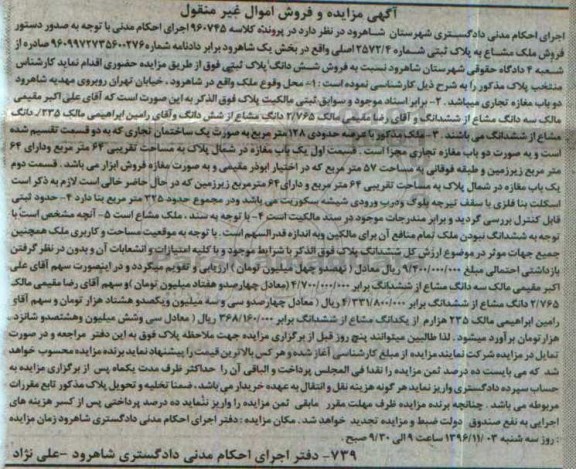 آگهی مزایده و فروش اموال غیر منقول
اجرای احکام مدنی دادگستری شهرستان شاهرود در نظر دارد در پرونده کلاسه ۹۶۰۷۴۵ اجرای احکام مدنی با توجه به صدور دستور
فروش ملک مشاع به پلاک ثبتی شماره ۲۵۷۲/۴ اصلی واقع در بخش یک شاهرود برابر دادنامه شماره ۹۶۰۹۹۷۲۷۳۵۶۰۰۲۷۶ صادره از
شعبه ۴ دادگاه حقوقی شهرستان شاهرود نسبت به فروش شش دانگ پلاک ثبتی فوق از طریق مزایده حضوری اقدام نماید کارشناس
منتخب پلاک مذکور را به شرح ذیل کارشناسی نموده است : ۱- محل وقوع ملک واقع در شاهرود ، خیابان تهران روبروی مهدیه شاهرود
دو باب مغازه تجاری میباشد . ۲- برابر اسناد موجود و سوابق ثبتی مالکیت پلاک فوق الذکر به این صورت است که آقای علی اکبر مقیمی
مالک سه دانگ مشاع از ششدانگ و آقای رضا مقیمی مالک ۲/۷۶۵ دانگ مشاع از شش دانگ وآقای رامین ابراهیمی مالک ۲۳۵/. دانگ
مشاع از ششدانگ می باشند . ۳- ملک مذکور با عرصه حدودی ۱۲۸ متر مربع به صورت یک ساختمان تجاری که به دو قسمت تقسیم شده
است و به صورت دو باب مغازه تجاری مجزا است . قسمت اول یک باب مغازه در شمال پلاک به مساحت تقریبی ۶۴ متر مربع ودارای ۶۴
متر مربع زیرزمین و طبقه فوقانی به مساحت ۵۷ متر مربع که در اختیار ابوذر مقیمی و به صورت مغازه فروش ابزار می باشد . قسمت دوم
یک باب مغازه در شمال پلاک به مساحت تقریبی ۶۴ متر مربع و دارای ۶۴ مترمربع زیرزمین که در حال حاضر خالی است لازم به ذکر است
اسکلت بنا فلزی با سقف تیرچه بلوک ودرب ورودی شیشه سکوریت می باشد ودر مجموع حدود ۳۲۵ متر مربع بنا دارد ۴- حدود ثبتی
قابل کنترل بررسی گردید و برابر مندرجات موجود در سند مالکیت است ۴- با توجه به سند ، ملک مشاع است ۵- آنچه مشخص است با
توجه به ششدانگ نبودن ملک تمام منافع آن برای مالکین وبه اندازه قدرالسهم است . با توجه به موقعیت مساحت و کاربری ملک همچنین
جمیع جهات موثر در موضوع ارزش کل ششدانگ پلاک فوق الذکر با شرایط موجود و با کلیه امتیازات و انشعابات آن و بدون در نظر گرفتن
بازداشتی احتمالی مبلغ ۹/۴۰۰/۰۰۰/۰۰۰ ریال معادل ( نهصدو چهل میلیون تومان ) ارزیابی و تقویم میگردد و در اینصورت سهم آقای علی
اکبر مقیمی مالک سه دانگ مشاع از ششدانگ برابر ۴/۷۰۰/۰۰۰/۰۰۰ (معادل چهارصدو هفتاد میلیون تومان )و سهم آقای رضا مقیمی مالک
۲/۷۶۵ دانگ مشاع از ششدانگ برابر ۴/۳۳۱/۸۰۰/۰۰۰ ریال ( معادل چهارصدو سی و سه میلیون ویکصدو هشتاد هزار تومان و سهم آقای
رامین ابراهیمی مالک ۲۳۵ هزارم از یکدانگ مشاع از ششدانگ برابر ۳۶۸/۱۶۰/۰۰۰ ریال ( معادل سی وشش میلیون وهشتصدو شانزده
هزار تومان برآورد میشود . لذا طالبین میتوانند پنج روز قبل از برگزاری مزایده جهت ملاحظه پلاک فوق به این دفتر مراجعه و در صورت
تمایل در مزایده شرکت نمایند مزایده از مبلغ کارشناسی آغاز شده و هر کس بالاترین قیمت را پیشنهاد نماید برنده مزایده محسوب خواهد
شد که می بایست ده درصد ثمن مزایده را نقدا فی المجلس پرداخت و الباقی آن را حداکثر ظرف مدت یکماه پس از برگزاری مزایده به
حساب سپرده دادگستری واریز نماید هر گونه هزینه نقل و انتقال به عهده خریدار می باشد ، ضمنا تخلیه و تحویل پلاک مذکور تابع مقررات
مربوطه می باشد . چنانچه برنده مزایده ظرف مهلت مقرر مابقی ثمن مزایده را واریز ننماید ده درصد پرداختی پس از کسر هزینه های
اجرایی به نفع صندوق دولت ضبط و مزایده تجدید خواهد شد. مکان مزایده : دفتر اجرای احکام مدنی دادگستری شاهرود زمان مزایده
: روز سه شنبه ۱۳۹۶/۱۱/۰۳ ساعت ۹ الی ۹/۳۰ صبح .
۷۳۹- دفتر اجرای احکام مدنی دادگستری شاهرود -علی نژاد